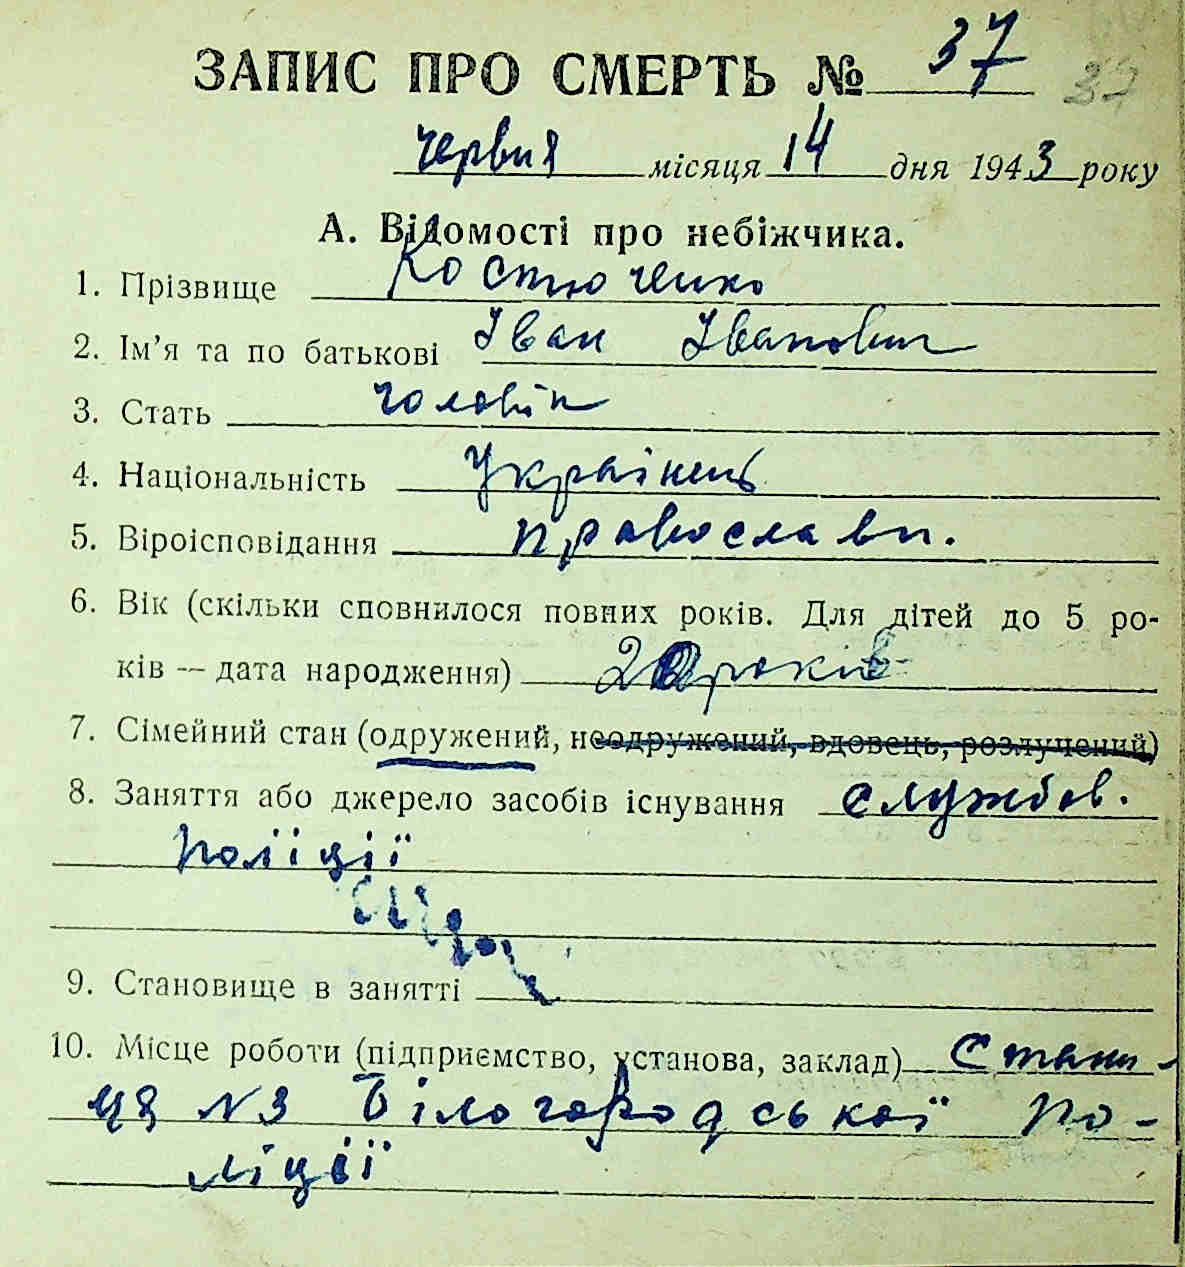 ЗАПИС ПРО СМЕРТЬ № 37 37
червня місяця 14 дня 1943 року
А. Відомості про небіжчика.
1. Прізвище Костюченко
2. Ім'я та по батькові Іван Іванович
3. Стать чоловік
4. Національність Українець
5. Віроісповідання православн.
6. Вік (скільки сповнилося повних років. Для дітей до 5 ро-
ків — дата народження) 20 років
7. Сімейний стан (одружений, неодружений, вдовець, розлучений)
8. Заняття або джерело засобів існування службов.
поліції
9. Становище в занятті
10. Місце роботи (підприємство, установа, заклад) Стани-
ця №3 Білогородської по-
ліції